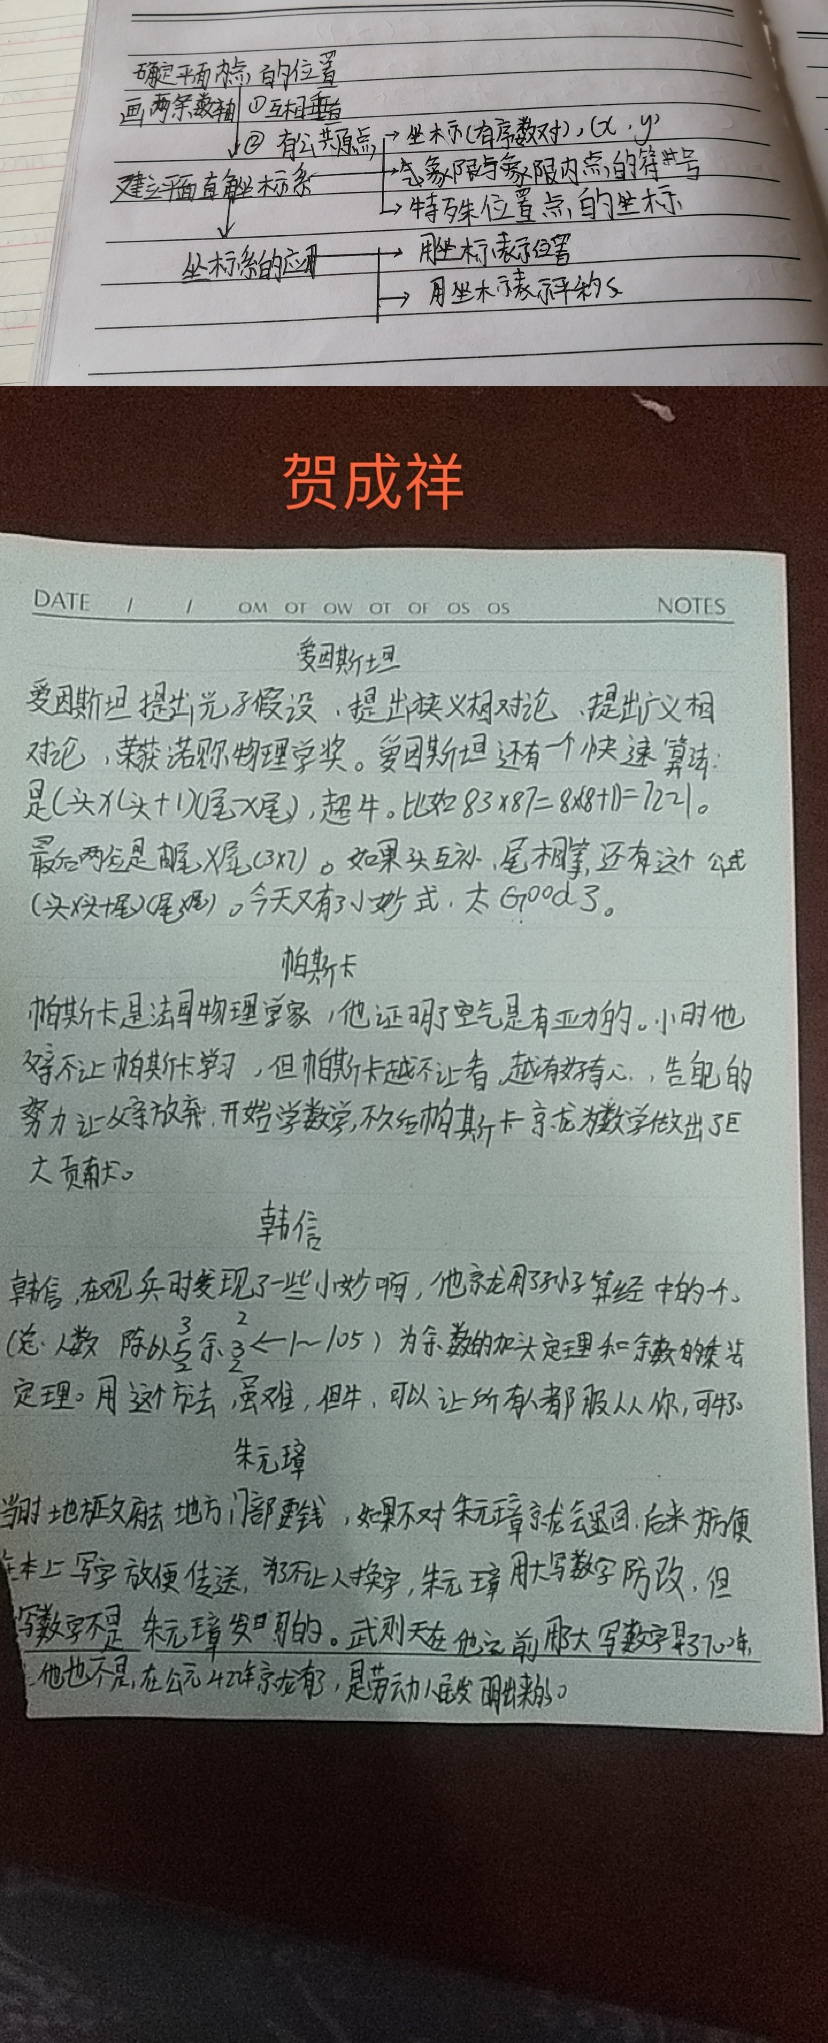 确定平面内点的位置
画两条数轴 ①互相垂直
② 有公共原点
建立平面直角坐标系
坐标(有序数对),(x,y)
象限与象限内点的符号
特殊位置点的坐标
坐标系的应用
用坐标表示位置
用坐标表示平移
贺成祥
DATE / / OM OT OW OT OF OS OS NOTES
爱因斯坦
爱因斯坦提出光子假设,提出狭义相对论,提出广义相
对论,荣获诺贝尔物理学奖。爱因斯坦还有一个快速算法:
是(头×(头+1)(尾×尾),超牛。比如83×87=8×(8+1)=7221。
最后两位是尾×尾(3×7)。如果头互补,尾相等,还有这个公式
(头×头+尾)(尾×尾)。今天又有了小妙式,太Good了。
帕斯卡
帕斯卡是法国物理学家,他证明了空气是有压力的。小时他
父亲不让帕斯卡学习,但帕斯卡越不让看,越有好奇心,自己的
努力让父亲放弃,开始学数学,不久后帕斯卡就为数学做出了巨
大贡献。
韩信
韩信,在观兵时发现了一些小妙啊,他就用了孙子算经中的一个。
(总人数 队 3 5 余 2 3 2 ←1~105)为余数的加头定理和余数的乘法
定理。用这个方法,虽难,但牛,可以让所有人都服从你,可牛了。
朱元璋
当时地方政府去地方门部要钱,如果不对朱元璋就会退回,后来为方便
在本上写字放便传送,为了不让人换字,朱元璋用大写数字防改,但
写数字不是朱元璋发明的。武则天在他之前用大写数字早了700年,
他也不是,在公元422年就有了,是劳动人民发明出来的。